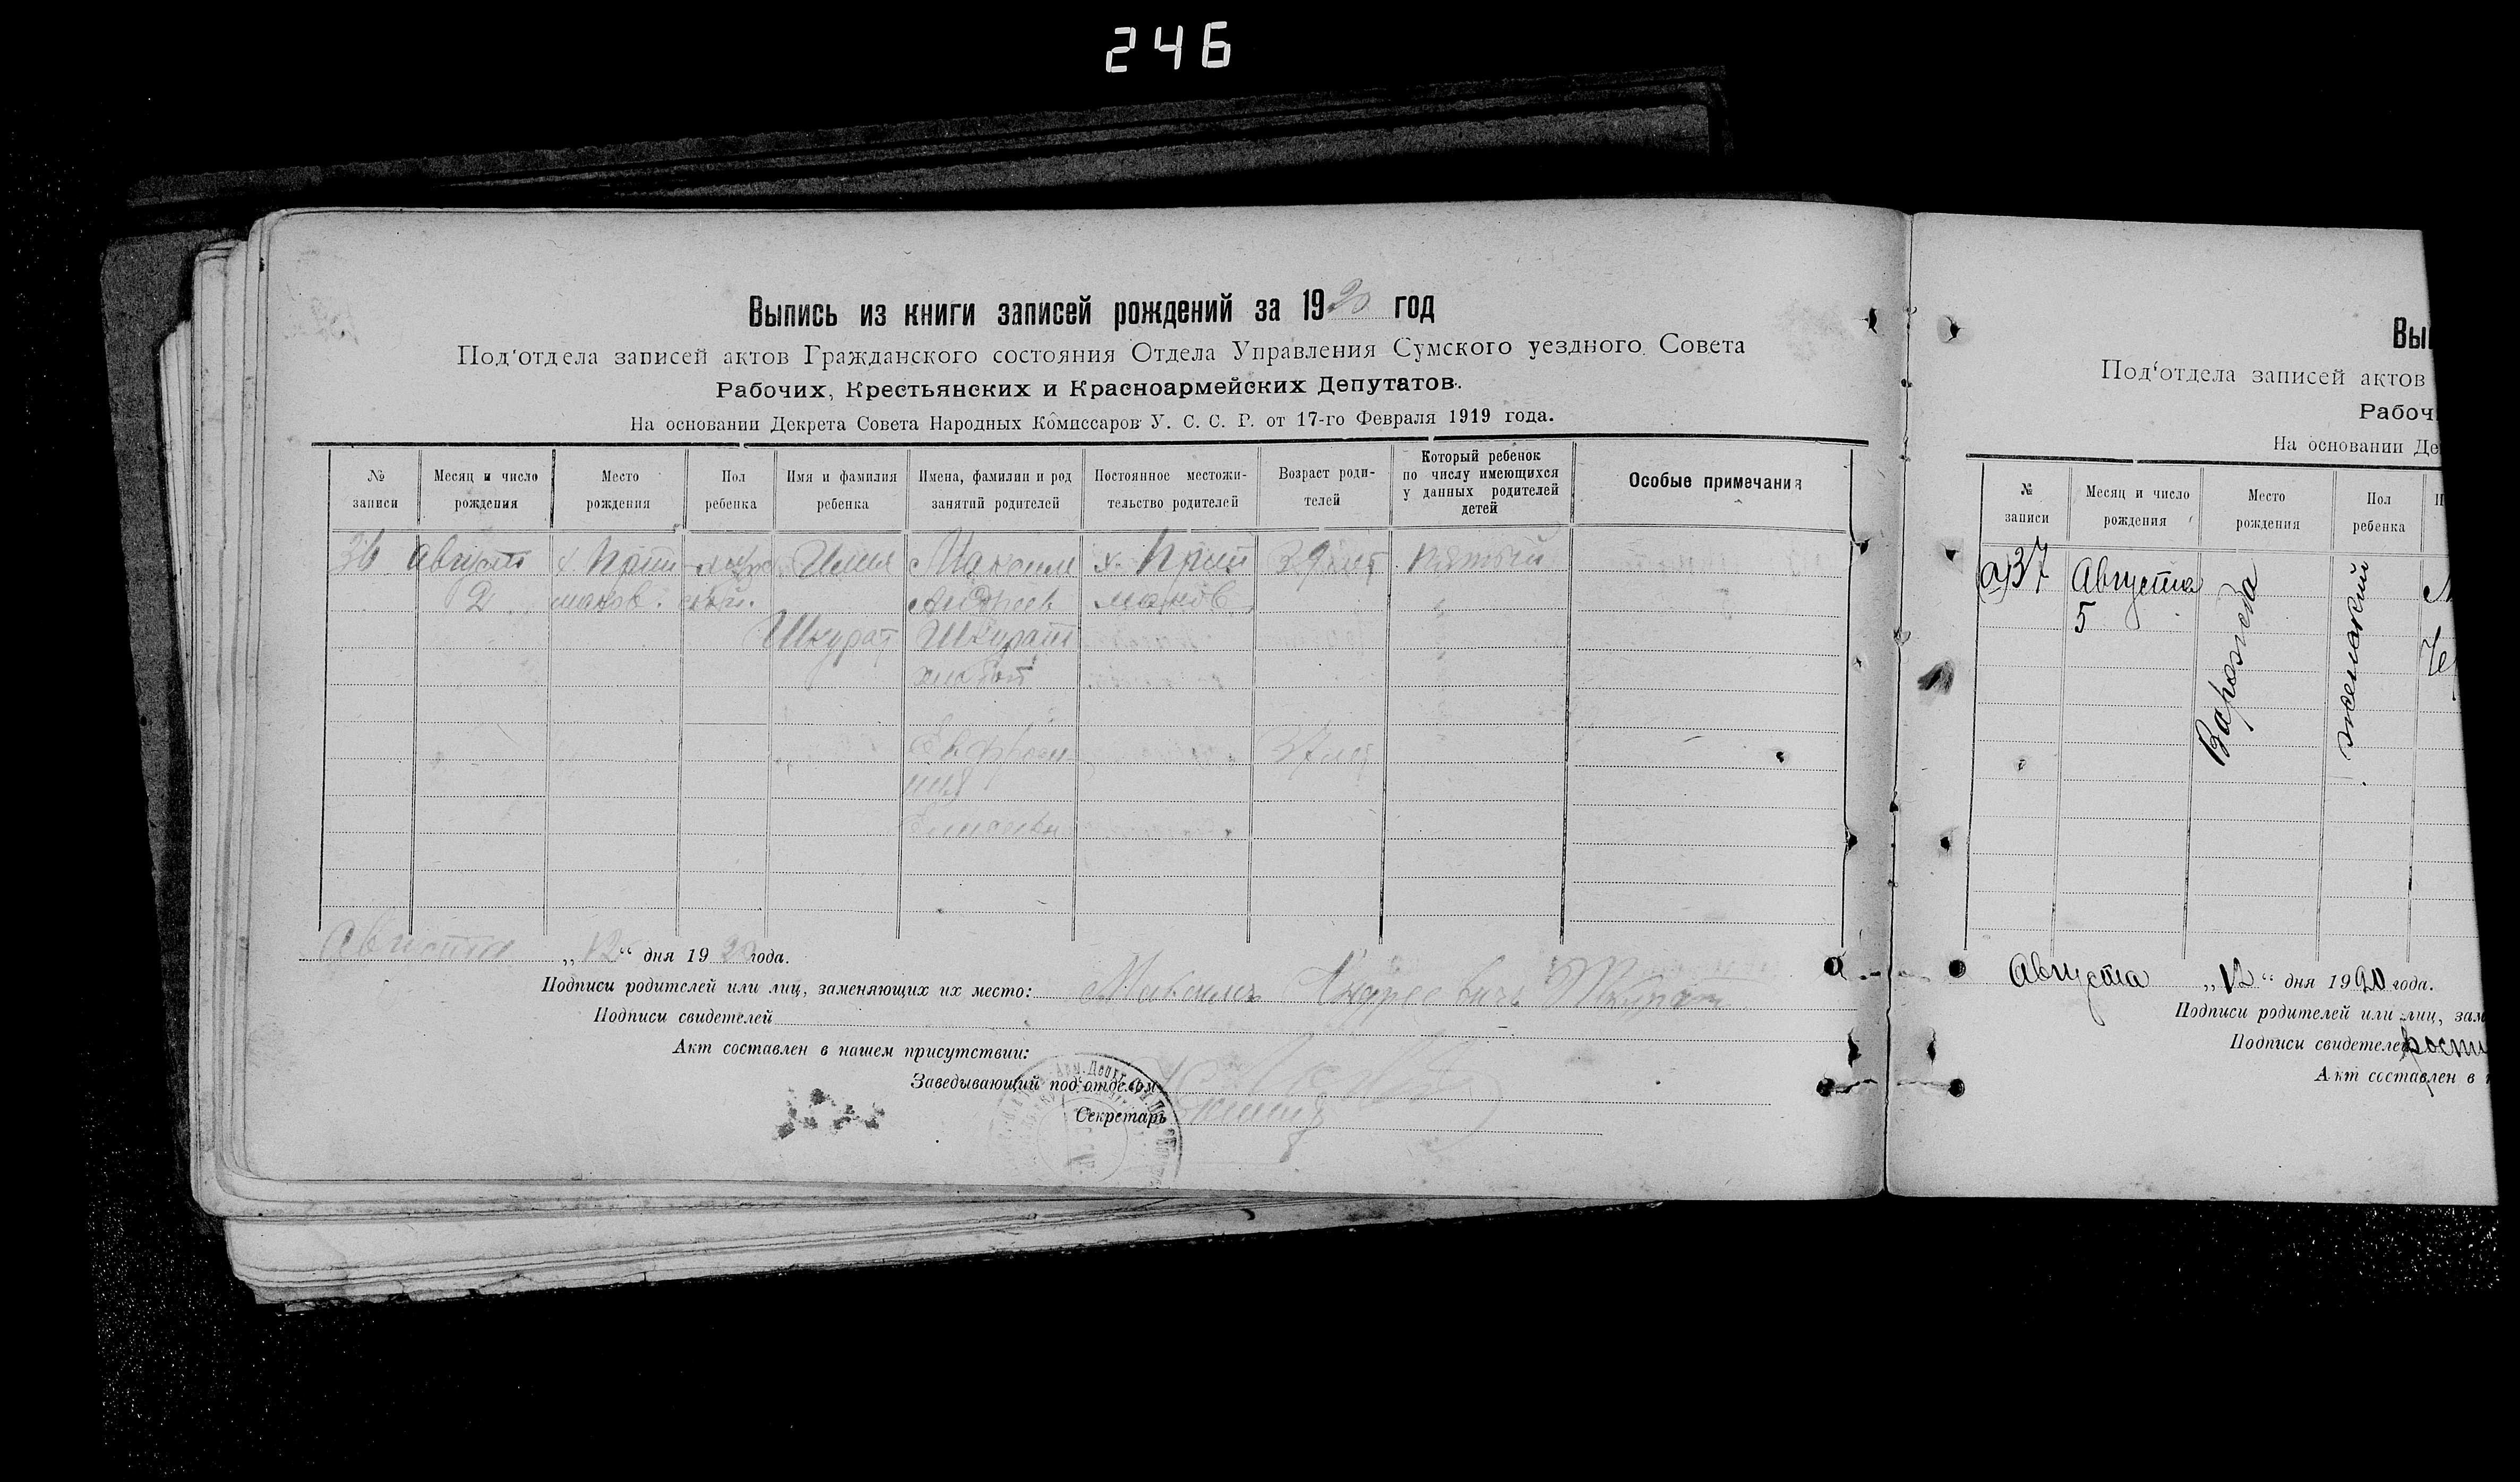 246
Выпись из книги записей рождений за 1920 год
Под'отдела записей актов Гражданского состояния Отдела Управления Сумского уездного Совета
Рабочих, Крестьянских и Красноармейских Депутатов.
На основании Декрета Совета Народных Комиссаров У. С. С. Р. от 17-го Февраля 1919 года.
№ записи
Месяц и число рождения
Место рождения
Пол ребенка
Имя и фамилия ребенка
Имена, фамилии и род занятий родителей
Постоянное местожительство родителей
Возраст родителей
Который ребенок по числу имеющихся у данных родителей детей
Особые примечания
36
Августа
2
Илия
Шкурат
Максим
Андреев
Шкурат
хлебоп
Евфроси-
ния
Елисеева
39 лет
37 лет
Пятый
Августа „12“ дня 1920 года.
Подписи родителей или лиц, заменяющих их место: Максим Андреевич Шкурат
Подписи свидетелей
Акт составлен в нашем присутствии:
Заведывающий под'отделом
Секретарь
Вы
Под'отдела записей актов
Рабоч
На основании Де
№ записи
Месяц и число рождения
Место рождения
Пол ребенка
37
Августа
5
Ворожба
женский
Августа „12“ дня 1920 года.
Подписи родителей или лиц, зам
Подписи свидетелей
Акт составлен в